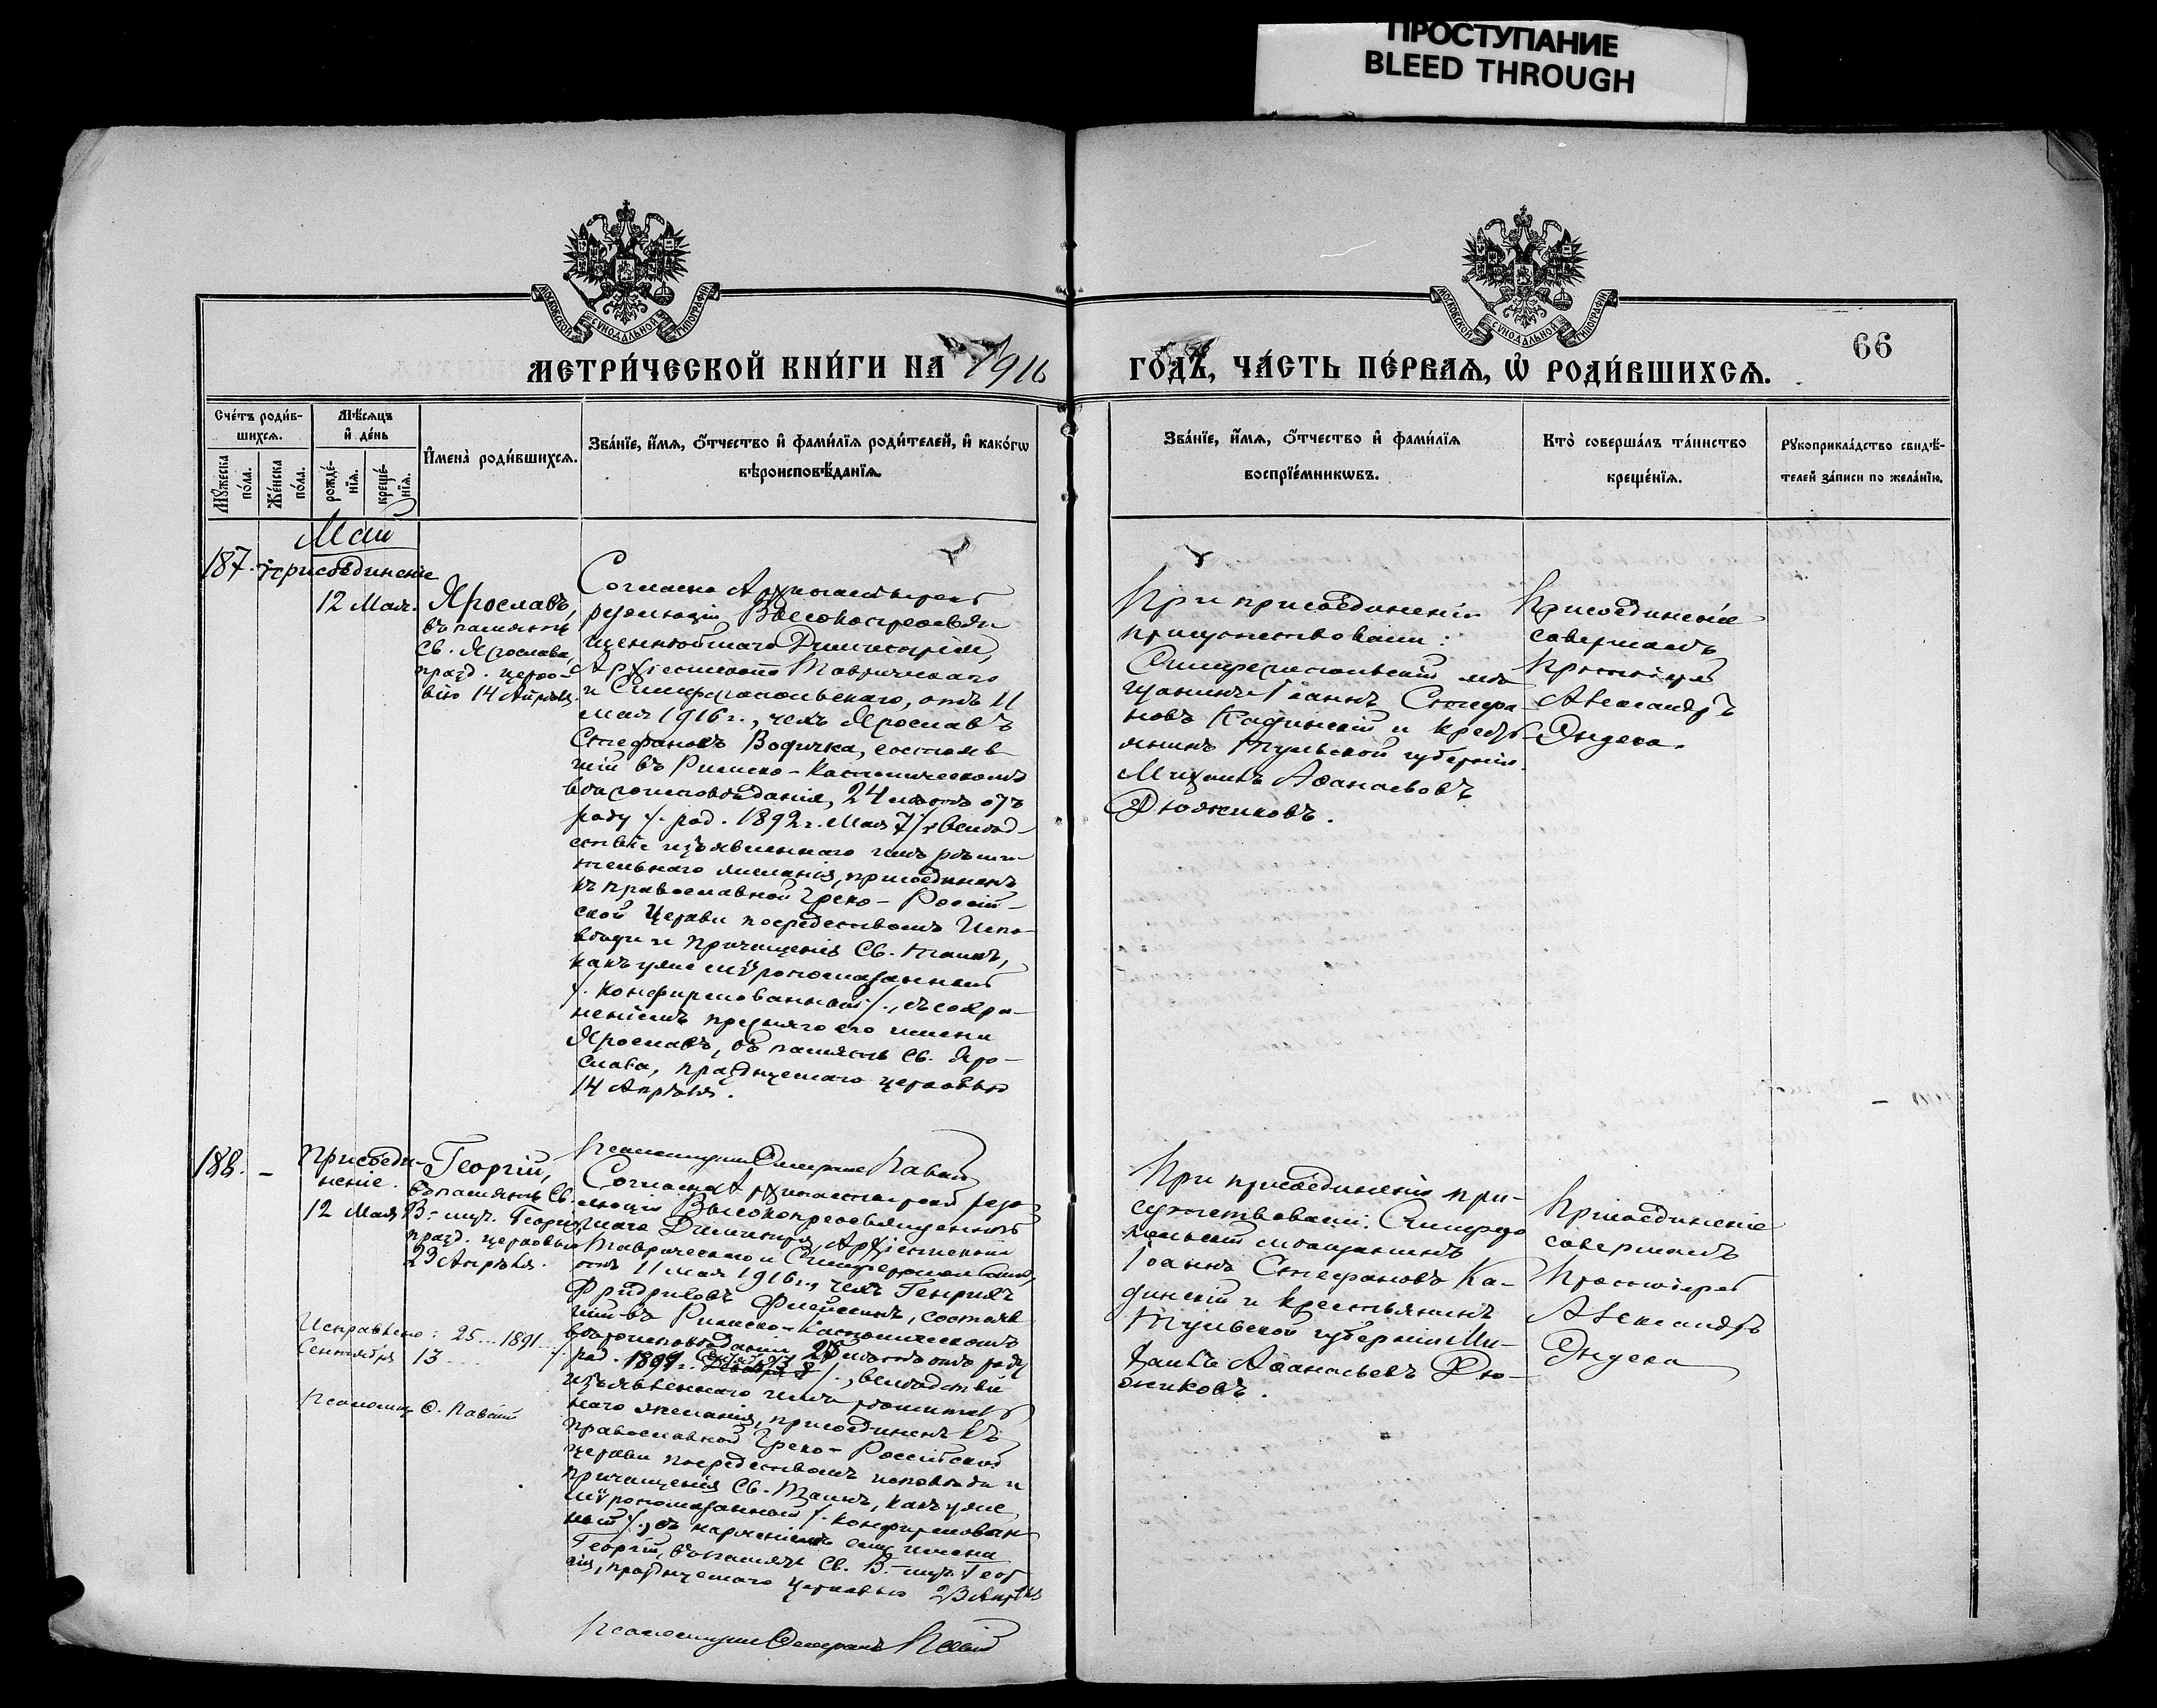 ПРОСТУПАНИЕ
BLEED THROUGH
МОСКОВСКОЙ СѴНОДАЛЬНОЙ ТИПОГРАФІИ
МОСКОВСКОЙ СѴНОДАЛЬНОЙ ТИПОГРАФІИ
66
МЕТРИ́ЧЕСКОЙ КНИ́ГИ НА 1916
ГОДЪ, ЧА́СТЬ ПЕ́РВАЯ, Ѽ РОДИ́ВШИХСЯ.
Сче́тъ роди́в-
шихся.
Мѣ́сяцъ
и҆ де́нь
Мꙋ́жеска
по́ла.
Же́нска
по́ла.
рожде́-
нїя.
креще́-
нїя.
И҆мена̀ роди́вшихся.
Зва́нїе, и҆́мя, ѻ҆́тчество и҆ фами́лїя роди́телей, и҆ како́гѡ
вѣроисповѣ́данїя.
Зва́нїе, и҆́мя, ѻ҆́тчество и҆ фами́лїя
воспрїе́мникѡвъ.
Кто̀ соверша́лъ та́инство
креще́нїя.
Рꙋкоприкла́дство свидѣ́-
телей за́писи по жела́нїю.
Май
187. - присоединеніе
12 Мая.
Ярославъ,
въ память
Св. Ярослава,
празд. церко-
вію 14 Апрѣля.
Согласно Архипастырской
резолюціи Высокопреосвя-
щеннѣйшаго Димитрія,
Архіепископа Таврическаго
и Симферопольскаго, отъ 11
мая 1916 г., чехъ Ярославъ
Стефановъ Водичка, состояв-
шій въ Римско-Католическомъ
вѣроисповѣданіи, 24 лѣтъ отъ
роду /. род. 1892 г. Мая 7/, вслѣд-
ствіе изъявленнаго имъ рѣши-
тельнаго желанія, присоединенъ
къ православной Греко-Россій-
ской Церкви посредствомъ Испо-
вѣди и причащенія Св. Таинъ,
какъ уже мѵропомазанный
/. конфирмованный /., съ сохра-
неніемъ прежняго его имени
Ярославъ, въ память Св. Яро-
слава, празднуемаго церковью
14 Апрѣля.
Псаломщикъ Павскій
При присоединеніи
присутствовали:
Симферопольскій мѣ-
щанинъ Іоаннъ Стефа-
новъ Кадинскій и Кресть-
янинъ Тульской губерніи
Михаилъ Аѳанасьевъ
Дюжиковъ.
Присоединеніе
совершалъ
Протоіерей
Александръ
Эндека.
188. -
Присоеди-
неніе.
12 Мая
Георгій,
въ память Св.
В.-муч. Георгія
празд. церковью
23 Апрѣля.
Исправлено: 25... 1891...
Сентября 13...
Псаломщ. С. Павскій
Согласно Архипастырской резо-
люціи Высокопреосвященнѣй-
шаго Димитрія, Архіепископа
Таврическаго и Симферопольскаго,
отъ 11 мая 1916 г., чехъ Генрихъ
Фридриховъ состояв-
шій въ Римско-Католическомъ
вѣроисповѣданіи, лѣтъ отъ роду
/. род. /., вслѣдствіе
изъявленнаго имъ рѣшитель-
наго желанія, присоединенъ къ
православной Греко-Россійской
церкви посредствомъ исповѣди и
причащенія Св. Таинъ, какъ уже
мѵропомазанный /. конфирмован-
ный /., съ нареченіемъ ему имени
Георгій, въ память Св. В.-муч. Геор-
гія, празднуемаго церковью 23 Апрѣля
Псаломщикъ Павскій
При присоединеніи при-
сутствовали: Симферо-
польскій мѣщанинъ
Іоаннъ Стефановъ Ка-
динскій и Крестьянинъ
Тульской губерніи Ми-
хаилъ Аѳанасьевъ Дю-
жиковъ.
Присоединеніе
совершалъ
Протоіерей
Александръ
Эндека